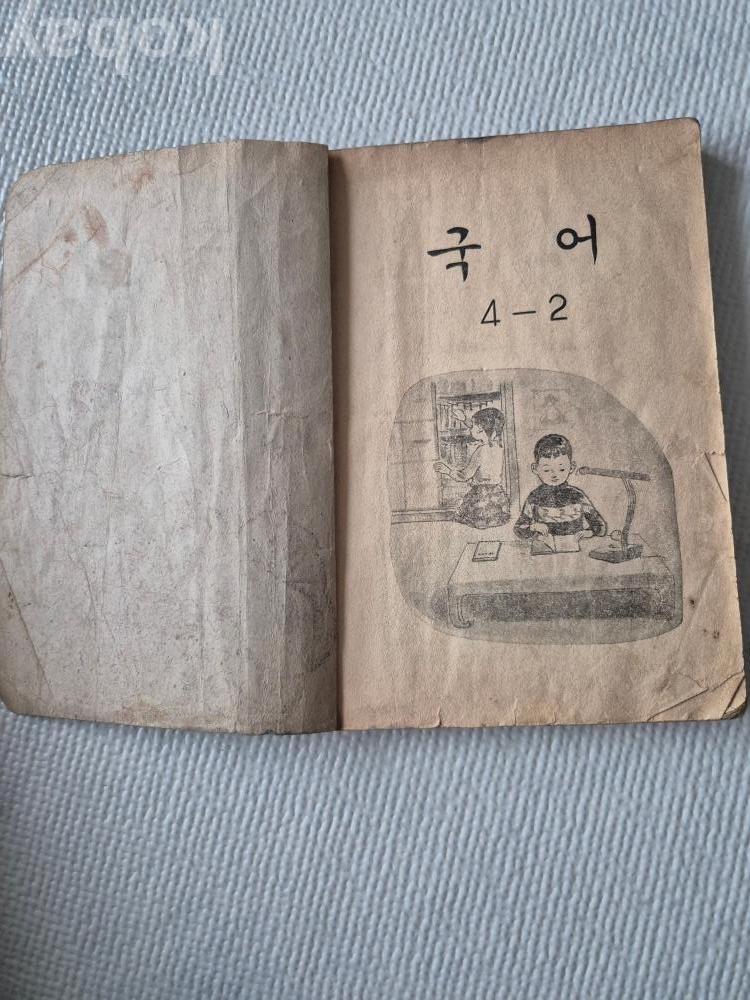 kobay
국 어
4-2